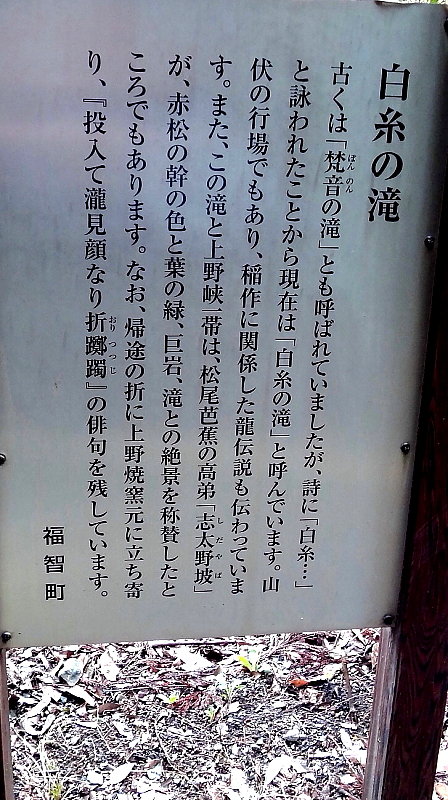 白糸の滝
古くは「梵音の滝」とも呼ばれていましたが、詩に「白糸…」
と詠われたことから現在は「白糸の滝」と呼んでいます。山
伏の行場でもあり、稲作に関係した龍伝説も伝わっていま
す。また、この滝と上野峡一帯は、松尾芭蕉の高弟「志太野坡」
が、赤松の幹の色と葉の緑、巨岩、滝との絶景を称賛したと
ころでもあります。なお、帰途の折に上野焼窯元に立ち寄
り、『投入て瀧見顔なり折躑躅』の俳句を残しています。
福智町